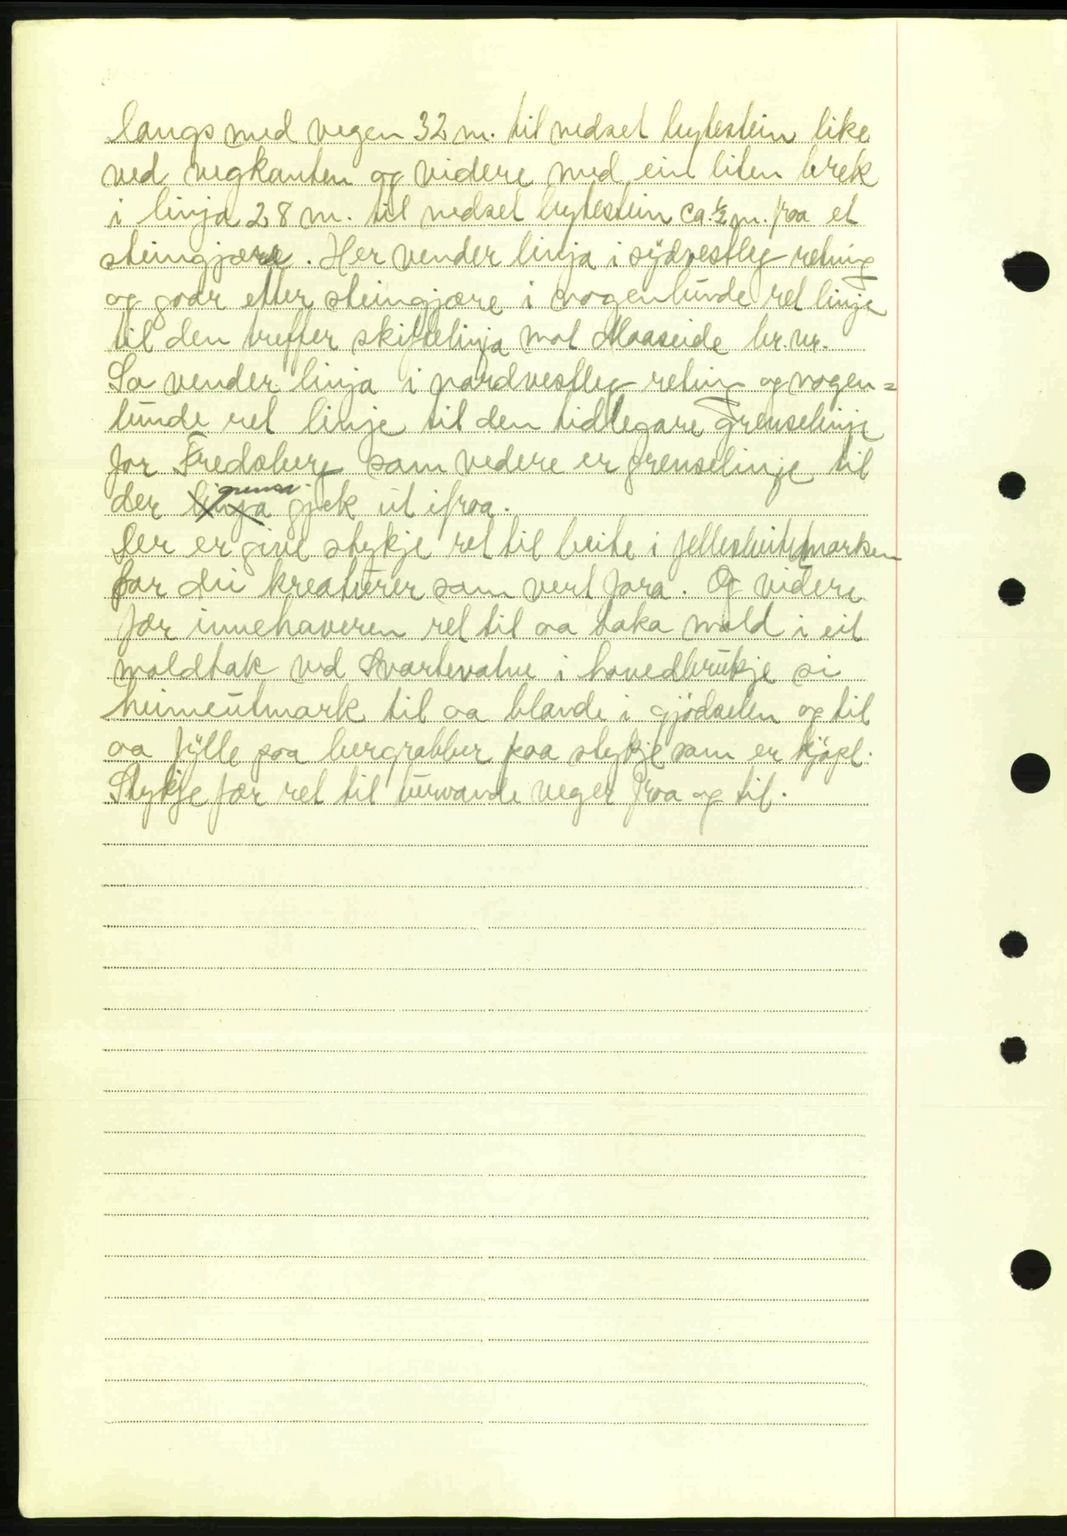 langs med vegen 32 m. til nedset bytestein like
ved vegkanten og videre med ein liten brek
i linja 28 m. til nedset bytestein ca. ½ m. fraa et
steingjære. Her vender linja i sydvestleg retning
og gaar etter steingjære i nogenlunde ret linje
til den treffer skiftelinja mot Maaseide br.nr.
So vender linja i nordvestleg retning og nogen=
lunde ret linje til den tidlegare grenselinje
for Fredsberg som vedere er grenselinje til
der grensa gjek ut ifraa.
Der er give stykje ret til beite i fellesbeitemarken
for dei kreaturer som vert fora. Og videre
fær innehaveren ret til aa taka mold i eit
moldtak ved Svartevatne i hovedbrukje si
heimeutmark til aa blande i gjødselen og til
aa fylle paa bergrabber paa stykje som er kjøpt.
Stykje fær ret til turvande veger fraa og til.